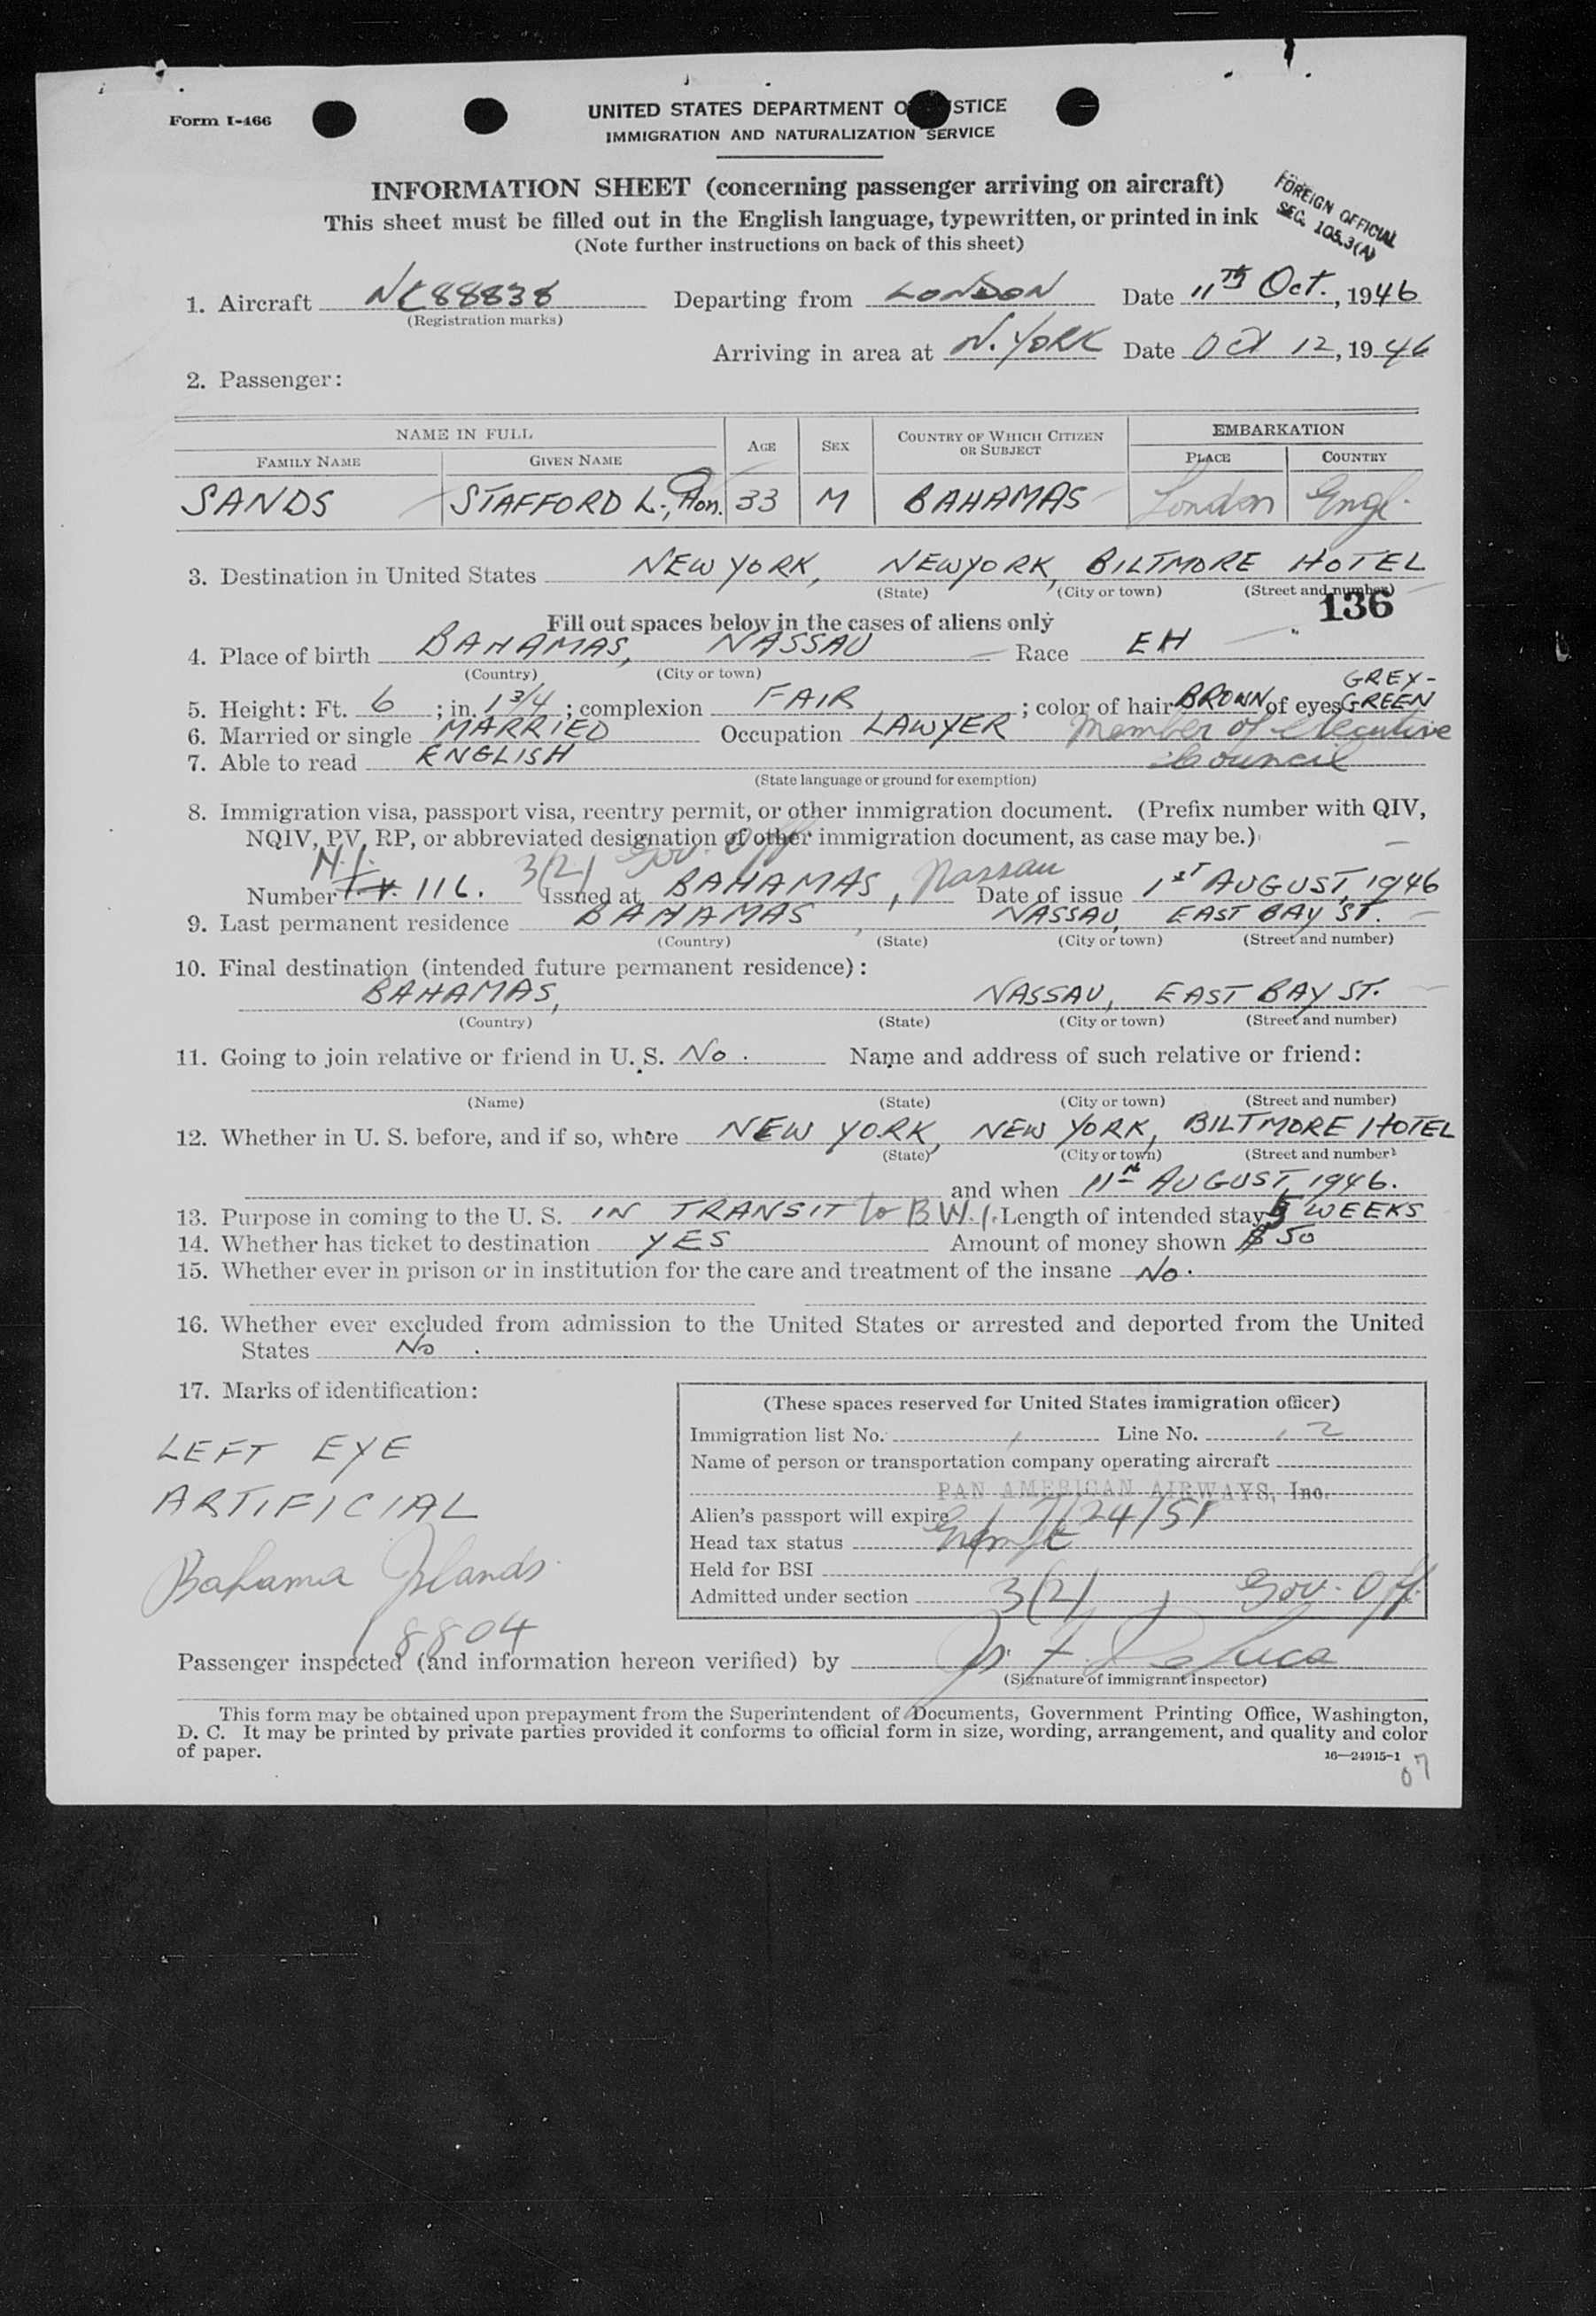 Form I-466
UNITED STATES DEPARTMENT O STICE
IMMIGRATION AND NATURALIZATION SERVICE
INFORMATION SHEET (concerning passenger arriving on aircraft)
This sheet must be filled out in the English language, typewritten, or printed in ink
(Note further instructions on back of this sheet)
FOREIGN OFFICIAL
SEC. 105.3(A)
1. Aircraft NC88838 Departing from LONDON Date 11TH Oct., 1946
(Registration marks)
Arriving in area at N. YORK Date Oct 12, 1946
2. Passenger:
NAME IN FULL AGE SEX COUNTRY OF WHICH CITIZEN OR SUBJECT EMBARKATION
FAMILY NAME GIVEN NAME PLACE COUNTRY
SANDS STAFFORD L., Hon. 33 M BAHAMAS London Engl.
3. Destination in United States NEW YORK, NEW YORK, BILTMORE HOTEL
(State) (City or town) (Street and number)
136
Fill out spaces below in the cases of aliens only
4. Place of birth BAHAMAS, NASSAU Race EH
(Country) (City or town)
5. Height: Ft. 6; in. 1 3/4; complexion FAIR; color of hair BROWN of eyes GREY-GREEN
6. Married or single MARRIED Occupation LAWYER Member of executive
7. Able to read ENGLISH Council
(State language or ground for exemption)
8. Immigration visa, passport visa, reentry permit, or other immigration document. (Prefix number with QIV,
NQIV, PV, RP, or abbreviated designation of other immigration document, as case may be.)
3(2) Gov. Off
Number 116. Issued at BAHAMAS, Nassau Date of issue 1ST AUGUST, 1946
9. Last permanent residence BAHAMAS, NASSAU, EAST BAY ST.
(Country) (State) (City or town) (Street and number)
10. Final destination (intended future permanent residence):
BAHAMAS, NASSAU, EAST BAY ST.
(Country) (State) (City or town) (Street and number)
11. Going to join relative or friend in U. S. No. Name and address of such relative or friend:
(Name) (State) (City or town) (Street and number)
12. Whether in U. S. before, and if so, where NEW YORK, NEW YORK, BILTMORE HOTEL
(State) (City or town) (Street and number)
and when 11TH AUGUST, 1946.
13. Purpose in coming to the U. S. IN TRANSIT to B.W.I. Length of intended stay 5 WEEKS
14. Whether has ticket to destination YES Amount of money shown $50
15. Whether ever in prison or in institution for the care and treatment of the insane No.
16. Whether ever excluded from admission to the United States or arrested and deported from the United
States No.
17. Marks of identification:
LEFT EYE
ARTIFICIAL
Bahama Islands
18804
(These spaces reserved for United States immigration officer)
Immigration list No. 1 Line No. 2
Name of person or transportation company operating aircraft
PAN AMERICAN AIRWAYS, Inc.
Alien's passport will expire 7/24/51
Head tax status Exempt
Held for BSI
Admitted under section 3(2) Gov. Off.
Passenger inspected (and information hereon verified) by
(Signature of immigrant inspector)
This form may be obtained upon prepayment from the Superintendent of Documents, Government Printing Office, Washington,
D. C. It may be printed by private parties provided it conforms to official form in size, wording, arrangement, and quality and color
of paper.
16—24915-1
07